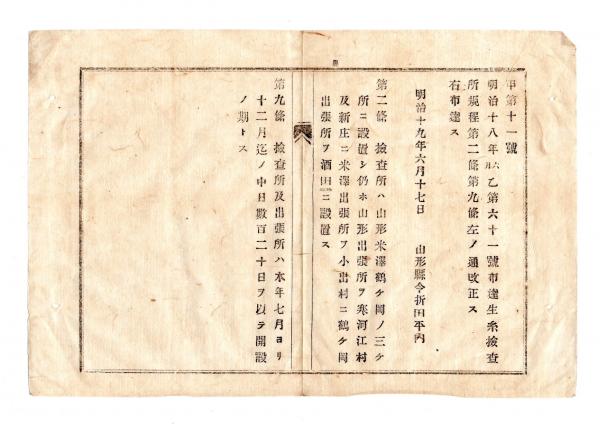 甲第十一號
明治十八年六月乙第六十一號布達生糸檢查
所規程第二條第九條左ノ通改正ス
右布達ス
明治十九年六月十七日　山形縣令折田平內
第二條　檢查所ハ山形米澤鶴ケ岡ノ三ケ
所ニ設置シ仍ホ山形出張所ヲ寒河江村
及新庄ニ米澤出張所ヲ小出村ニ鶴ケ岡
出張所ヲ酒田ニ設置ス
第九條　檢查所及出張所ハ本年七月ヨリ
十二月迄ノ中日數百二十日ヲ以テ開設
ノ期トス